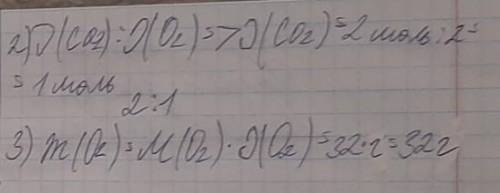 2) ν(CO2):ν(O2)=>ν(CO2)=2 моль:2=
=1 моль
2:1
3) m(O2)=M(O2)·ν(O2)=32·1=32г